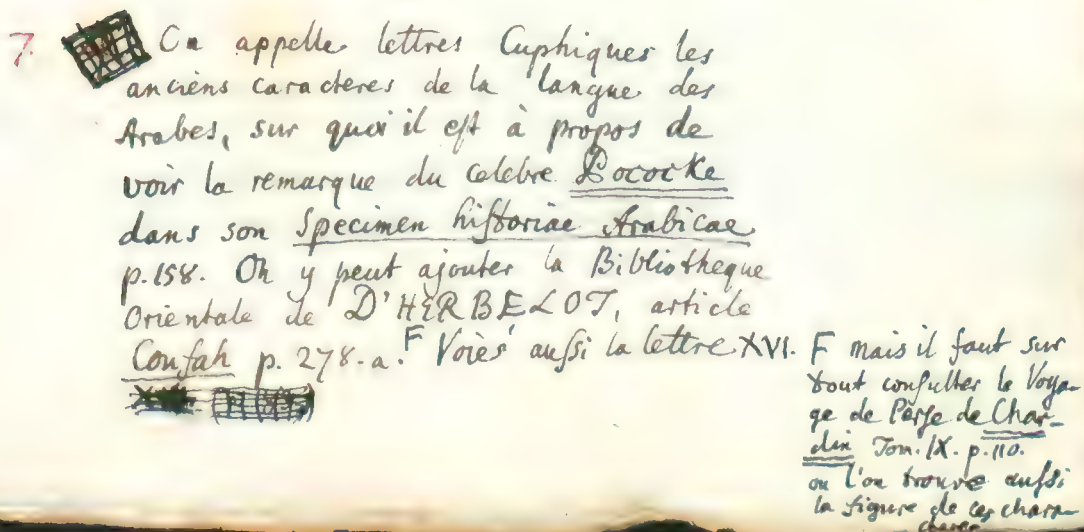 7. On appelle lettres Cuphiques les
anciens caracteres de la langue des
Arabes, sur quoi il est à propos de
voir la remarque du celebre Pococke
dans son Specimen historiae Arabicae
p. 158. On y peut ajouter la Bibliotheque
Orientale de D'HERBELOT, article
Coufah p. 278. a. F Voiés aussi la lettre XVI.
F mais il faut sur
tout consulter le Voya-
ge de Perse de Char-
din Tom. IX. p. 110.
ou l'on trouve aussi
la figure de ces chara-